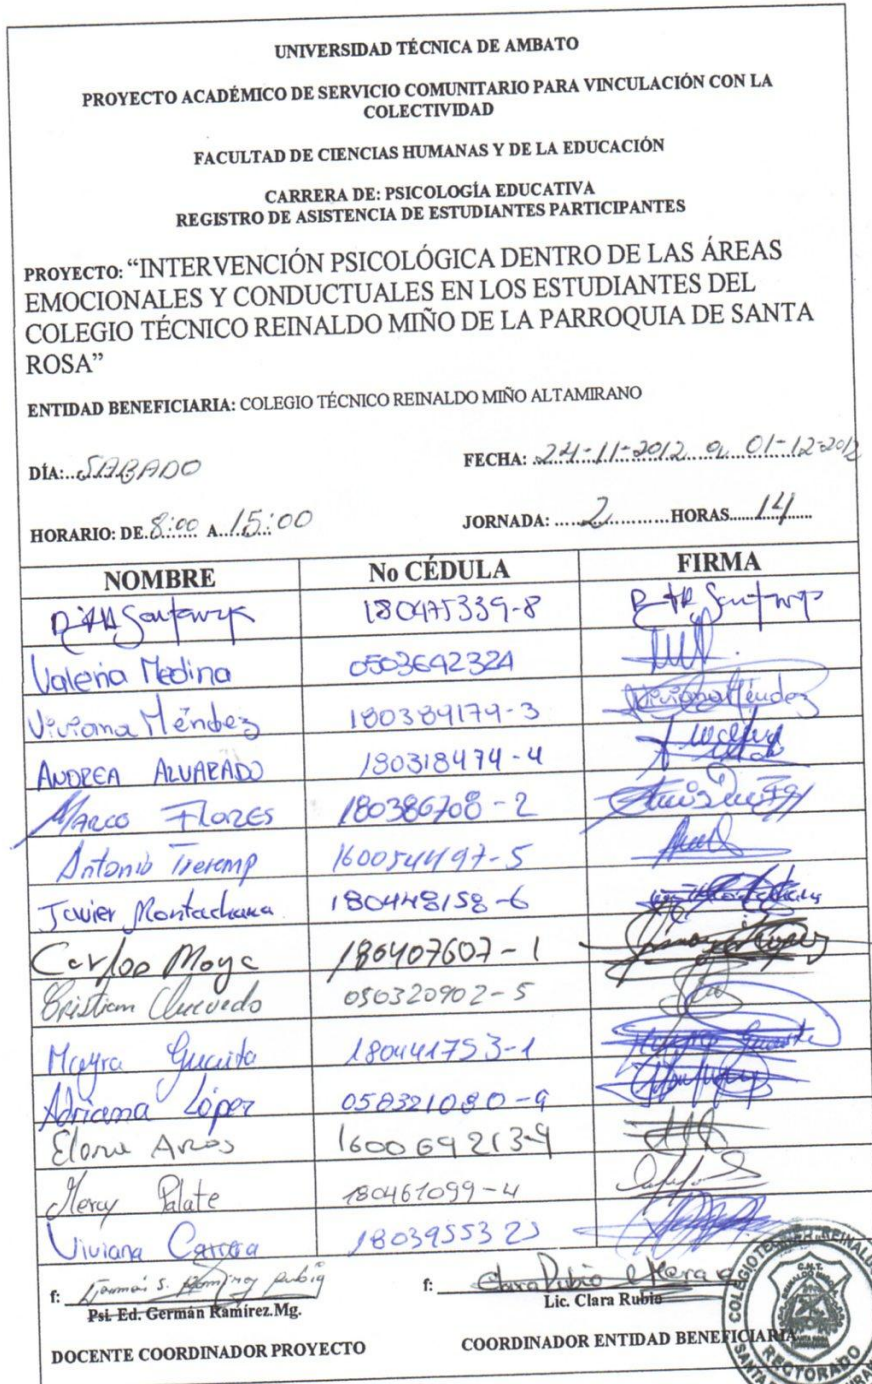 UNIVERSIDAD TÉCNICA DE AMBATO
PROYECTO ACADÉMICO DE SERVICIO COMUNITARIO PARA VINCULACIÓN CON LA
COLECTIVIDAD
FACULTAD DE CIENCIAS HUMANAS Y DE LA EDUCACIÓN
CARRERA DE: PSICOLOGÍA EDUCATIVA
REGISTRO DE ASISTENCIA DE ESTUDIANTES PARTICIPANTES
PROYECTO: “INTERVENCIÓN PSICOLÓGICA DENTRO DE LAS ÁREAS
EMOCIONALES Y CONDUCTUALES EN LOS ESTUDIANTES DEL
COLEGIO TÉCNICO REINALDO MIÑO DE LA PARROQUIA DE SANTA
ROSA”
ENTIDAD BENEFICIARIA: COLEGIO TÉCNICO REINALDO MIÑO ALTAMIRANO
DÍA: SABADO FECHA: 24-11-2012 a 01-12-2012
HORARIO: DE 8:00 A 15:00 JORNADA: 2 HORAS 14
NOMBRE No CÉDULA FIRMA
180475339-8
Valeria Medina 0503642324
Viviana Méndez 180389179-3 Viviana Méndez
ANDREA ALVARADO 180318474-4
MARCO FLORES 180386708-2
Antonio 160054497-5
Javier Montachana 180448158-6
Carlos Moya 180407607-1
Cristian Quevedo 050320902-5
Mayra Guaita 180441753-1
Adriana López 050321080-9
Arias 160069213-9
Mercy Palate 180461099-4
Viviana
f: f: Clara Rubio
Psi. Ed. Germán Ramírez.Mg. Lic. Clara Rubio
DOCENTE COORDINADOR PROYECTO COORDINADOR ENTIDAD BENEFICIARIA
RECTORADO